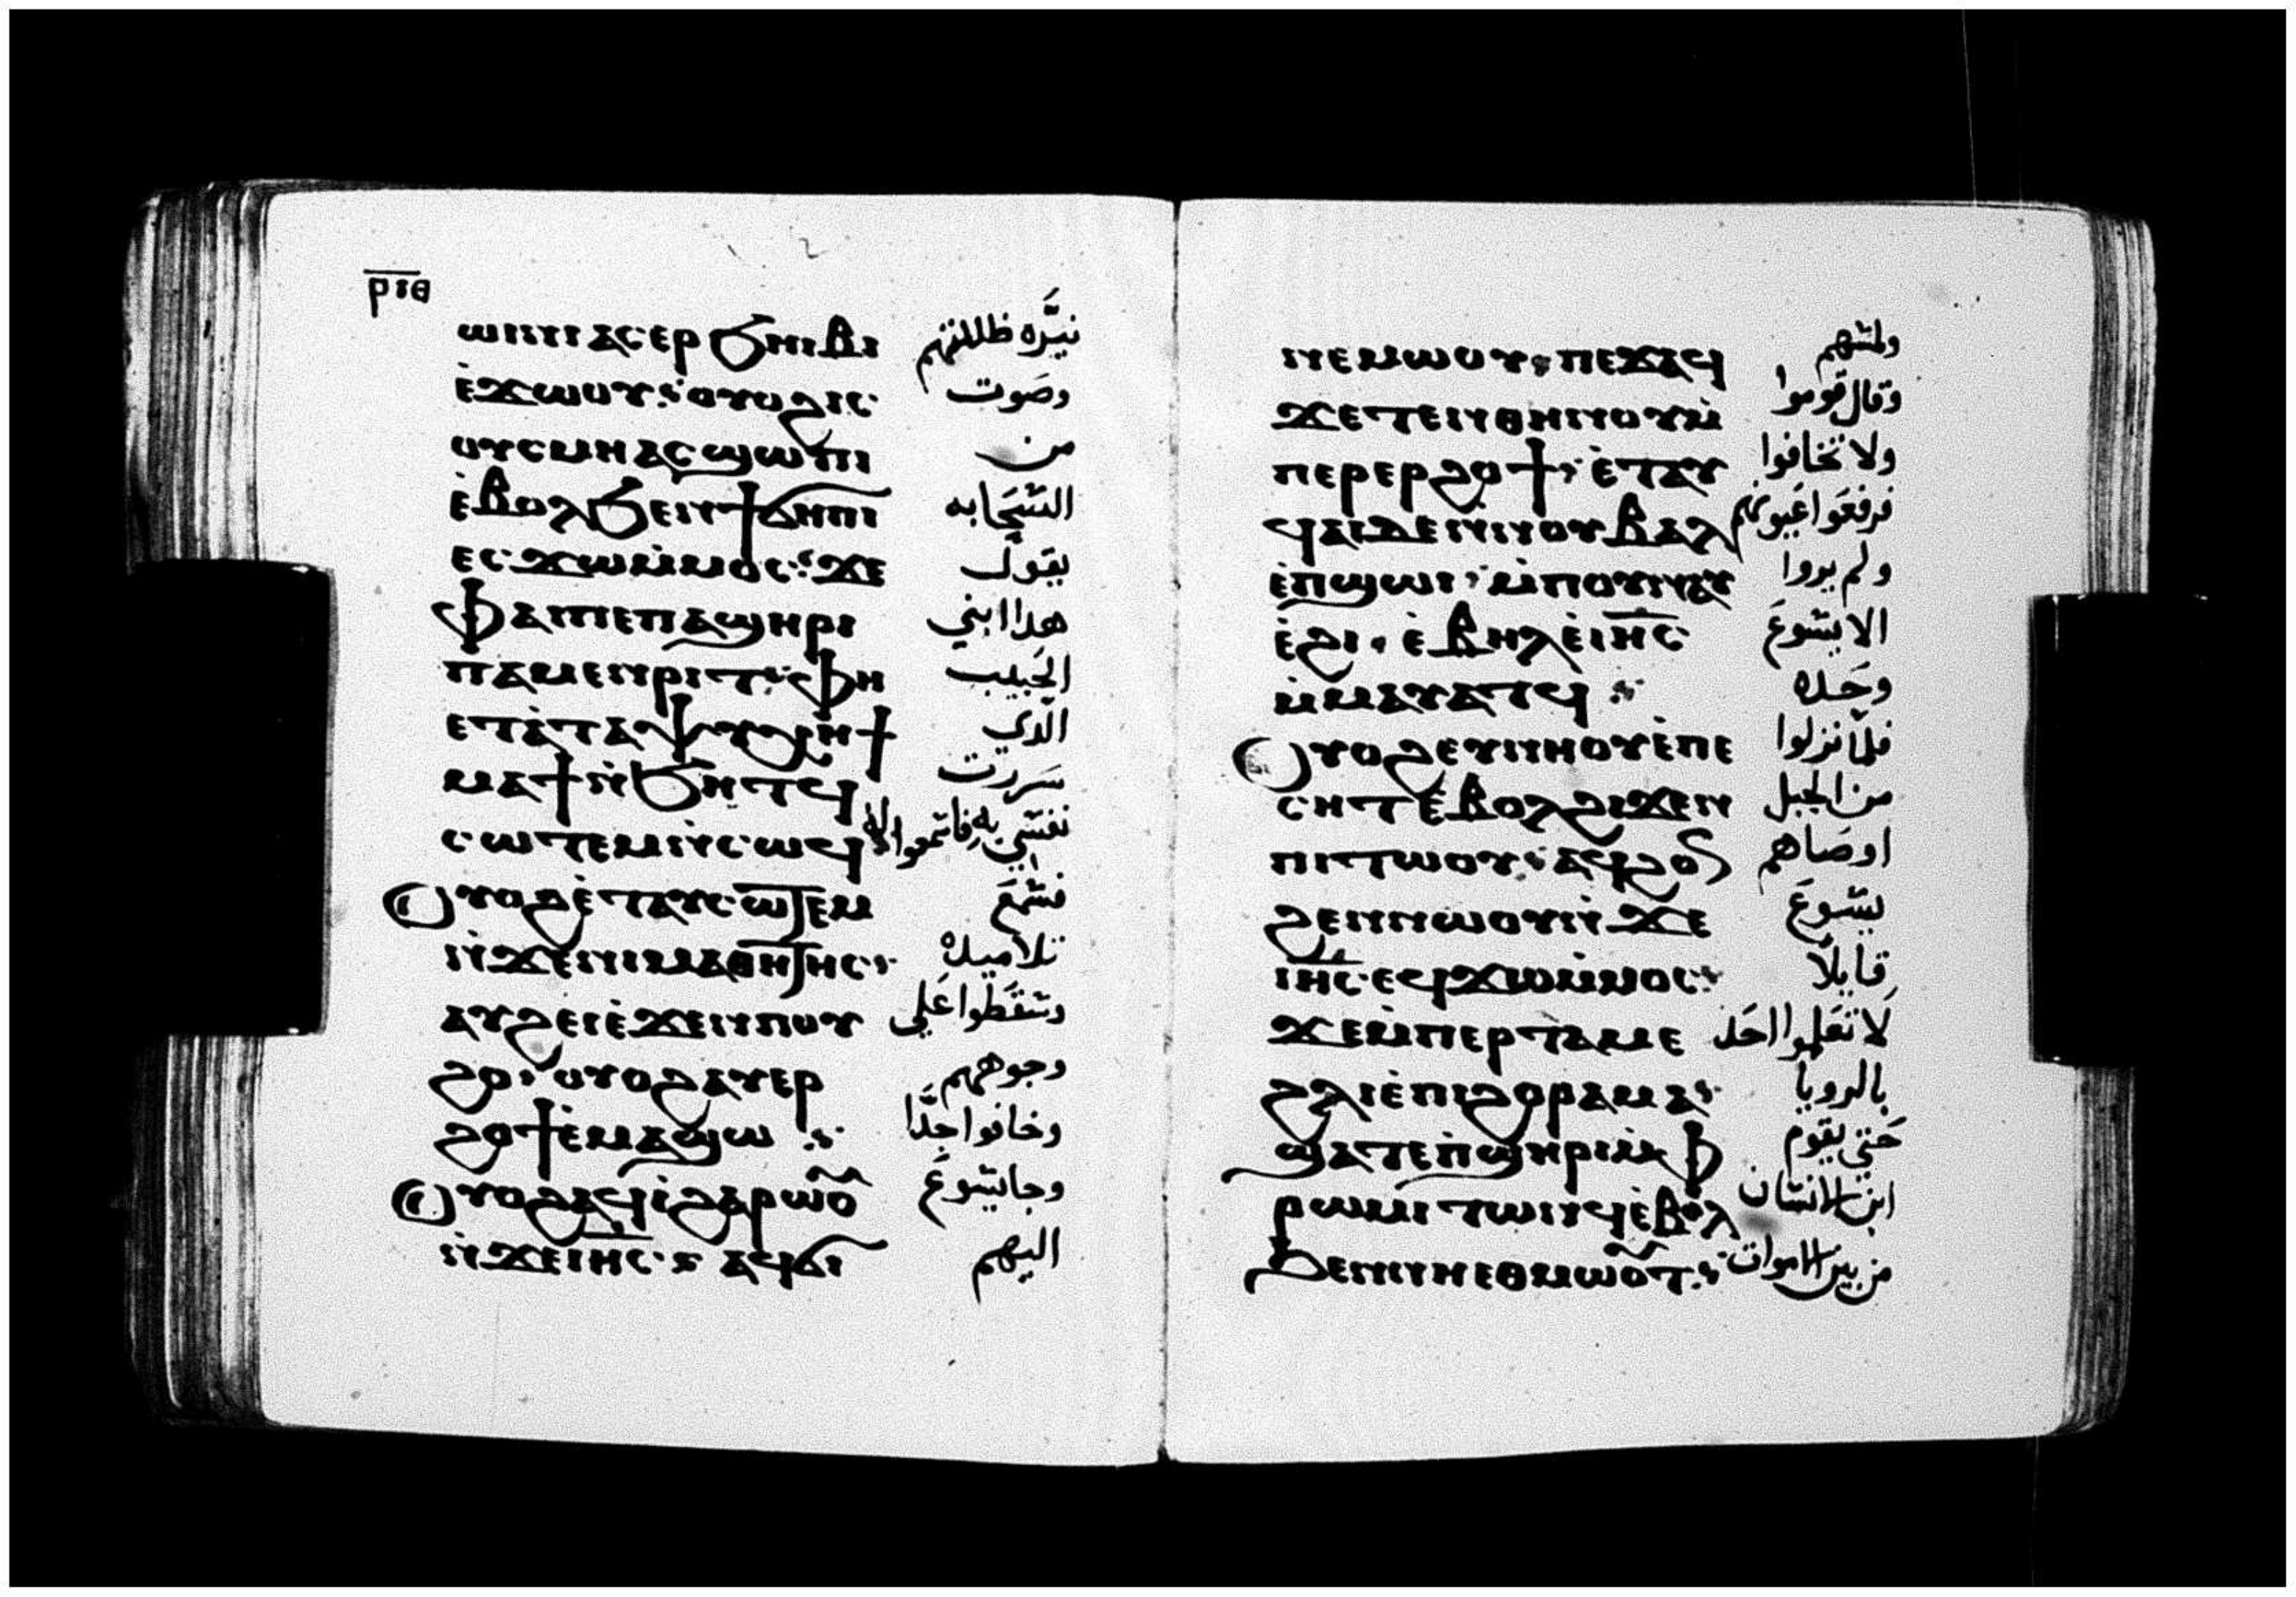 ⲣⲓⲑ
ⲱⲓⲛⲓ ⲁⲥⲉⲣ ϧⲏⲓⲃⲓ نيَّره ظللتهم
ⲉ̀ϫⲱⲟⲩ ⲟⲩⲟϩ ⲓⲥ وصوت
ⲟⲩⲥⲙⲏ ⲁⲥϣⲱⲡⲓ من
ⲉ̀ⲃⲟⲗϧⲉⲛϯϭⲏⲡⲓ السَّحابه
ⲉⲥϫⲱⲙ̀ⲙⲟⲥ ϫⲉ يقول
ⲫⲁⲓⲡⲉⲡⲁϣⲏⲣⲓ هدا ابني
ⲡⲁⲙⲉⲛⲣⲓⲧ ⲫⲏ الحبيب
ⲉⲧⲁ̀ⲧⲁⲯⲩⲭⲏϯ الدي
ⲙⲁϯⲛ̀ϧⲏⲧϥ سررت
ⲥⲱⲧⲉⲙⲛ̀ⲥⲱϥ نفسي به فاسمعوا له
ⲟⲩⲟϩⲉ̀ⲧⲁⲩⲥⲱⲧⲉⲙ فسمع
ⲛ̀ϫⲉⲛⲓⲙⲁⲑⲏⲧⲏⲥ تلاميده
ⲁⲩϩⲉⲓⲉ̀ϫⲉⲛⲡⲟⲩ وسقطوا علي
ϩⲟ ⲟⲩⲟϩⲁⲩⲉⲣ وجوههم
ϩⲟϯⲉ̀ⲙⲁϣⲱ وخافوا جدًّا
ⲟⲩⲟϩⲁϥⲓ̀ϩⲁⲣⲱⲟⲩ وجا يسوع
ⲛ̀ϫⲉⲓⲏⲥ ⲁϥϭⲓ اليهم
ⲛⲉⲙⲱⲟⲩ ⲡⲉϫⲁϥ ولمسهم
ϫⲉⲧⲉⲛⲑⲏⲛⲟⲩⲙ̀ وقال قوموا
ⲡⲉⲣⲉⲣϩⲟϯ ⲉ̀ⲧⲁⲩ ولا تخافوا
ϥⲁⲓⲇⲉⲛ̀ⲛⲟⲩⲃⲁⲗ فرفعوا اعيونهم
ⲉ̀ⲡϣⲱⲓ ⲙ̀ⲡⲟⲩⲛⲁⲩ ولم يروا
ⲉ̀ϩⲗⲓ ⲉ̀ⲃⲏⲗⲉ̀ⲓⲏⲥ الا يسوع
ⲙ̀ⲙⲁⲩⲁⲧϥ وحده
ⲟⲩⲟϩⲉⲩⲛⲏⲟⲩⲉ̀ⲡⲉ فلما نزلوا
ⲥⲏⲧⲉ̀ⲃⲟⲗϩⲓϫⲉⲛ من الجبل
ⲡⲓⲧⲱⲟⲩ ⲁϥϩⲟⲛ اوصاهم
ϩⲉⲛⲛⲱⲟⲩⲛ̀ϫⲉ يسوع
ⲓⲏⲥ ⲉϥϫⲱⲙ̀ⲙⲟⲥ قايلًا
ϫⲉⲙ̀ⲡⲉⲣⲧⲁⲙⲉ لا تعلموا احد
ϩⲗⲓⲉ̀ⲡⲓϩⲟⲣⲁⲙⲁ بالرويا
ϣⲁⲧⲉⲡ̀ϣⲏⲣⲓⲙ̀ⲫ حتي يقوم
ⲣⲱⲙⲓ ⲧⲱⲛϥⲉ̀ⲃⲟⲗ ابن الانسان
ϧⲉⲛⲛⲏⲉⲑⲙⲱⲟⲩⲧ من بين الاموات